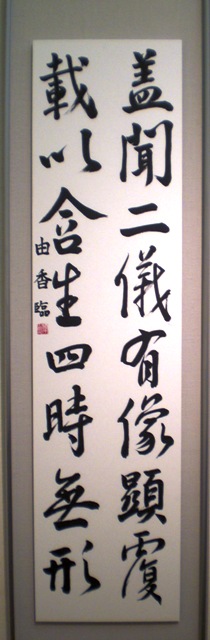 盖聞二儀有像顯覆
載以含生四時無形
由香臨